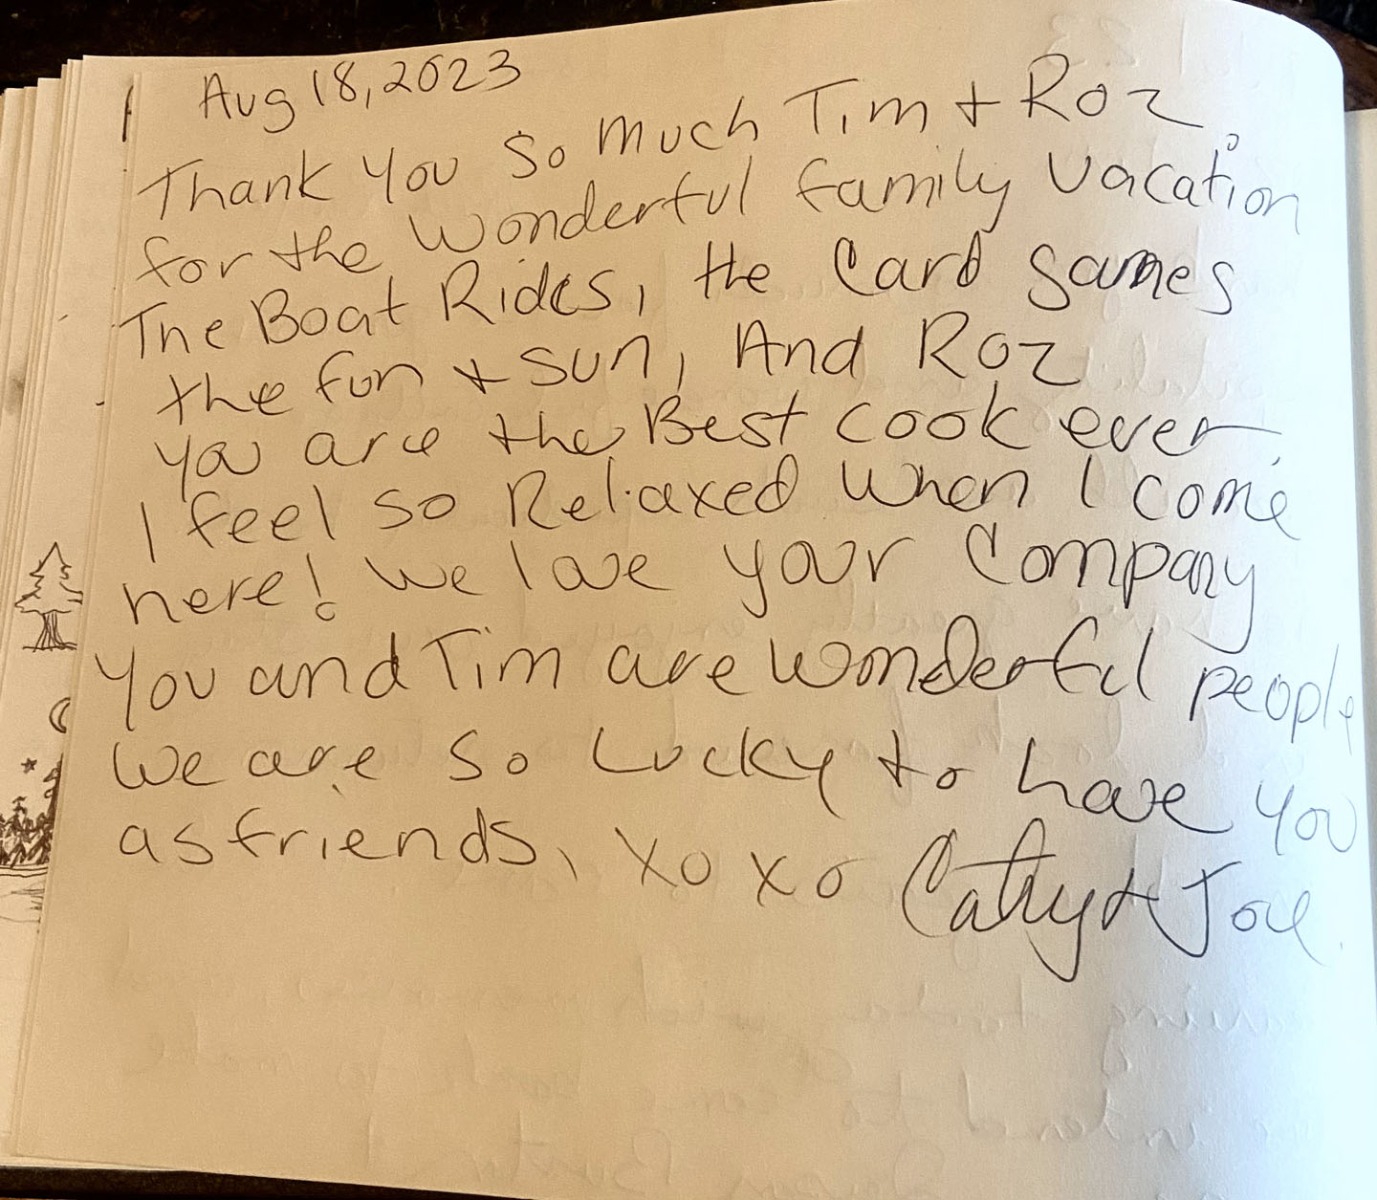 Aug 18, 2023
Thank You So Much Tim + Roz
for the Wonderful family Vacation
The Boat Rides, the Card games
the fun + sun, And Roz
you are the Best cook ever.
I feel so Relaxed when I come
here! We love your Company
You and Tim are wonderful people
We are so Lucky to have you
as friends, xoxo Cathy + Joe.